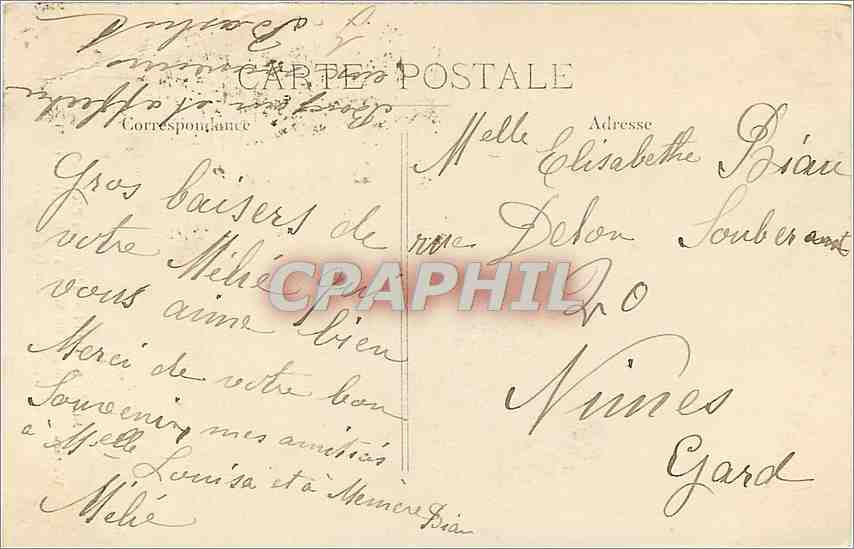 CARTE POSTALE
Correspondance
Adresse
Gros baisers de
votre Mélie qui
vous aime bien
Merci de votre bon
Souvenir, mes amitiés
à Melle
Louisa et à Mémère Biau
Mélie
Melle Elisabethe Biau
rue Delon Souberant
20
Nimes
Gard
CPAPHIL